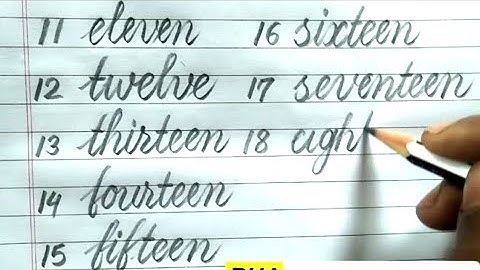 11 eleven 16 sixteen
12 twelve 17 seventeen
13 thirteen 18 eight
14 fourteen
15 fifteen